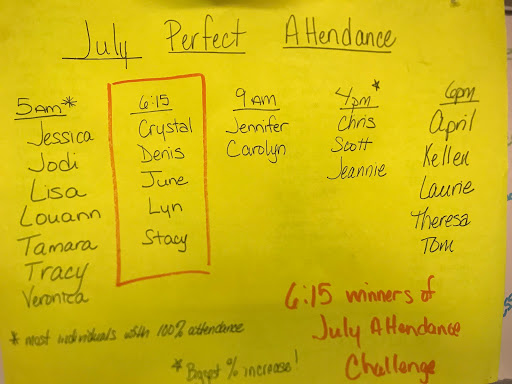 July Perfect Attendance
5am*
Jessica
Jodi
Lisa
Louann
Tamara
Tracy
Veronica
6:15
Crystal
Denis
June
Lyn
Stacy
9am
Jennifer
Carolyn
4pm*
Chris
Scott
Jeannie
6pm
April
Kellen
Laurie
Theresa
Tom
* most individuals with 100% attendance
* Biggest % increase!
6:15 winners of
July Attendance
Challenge